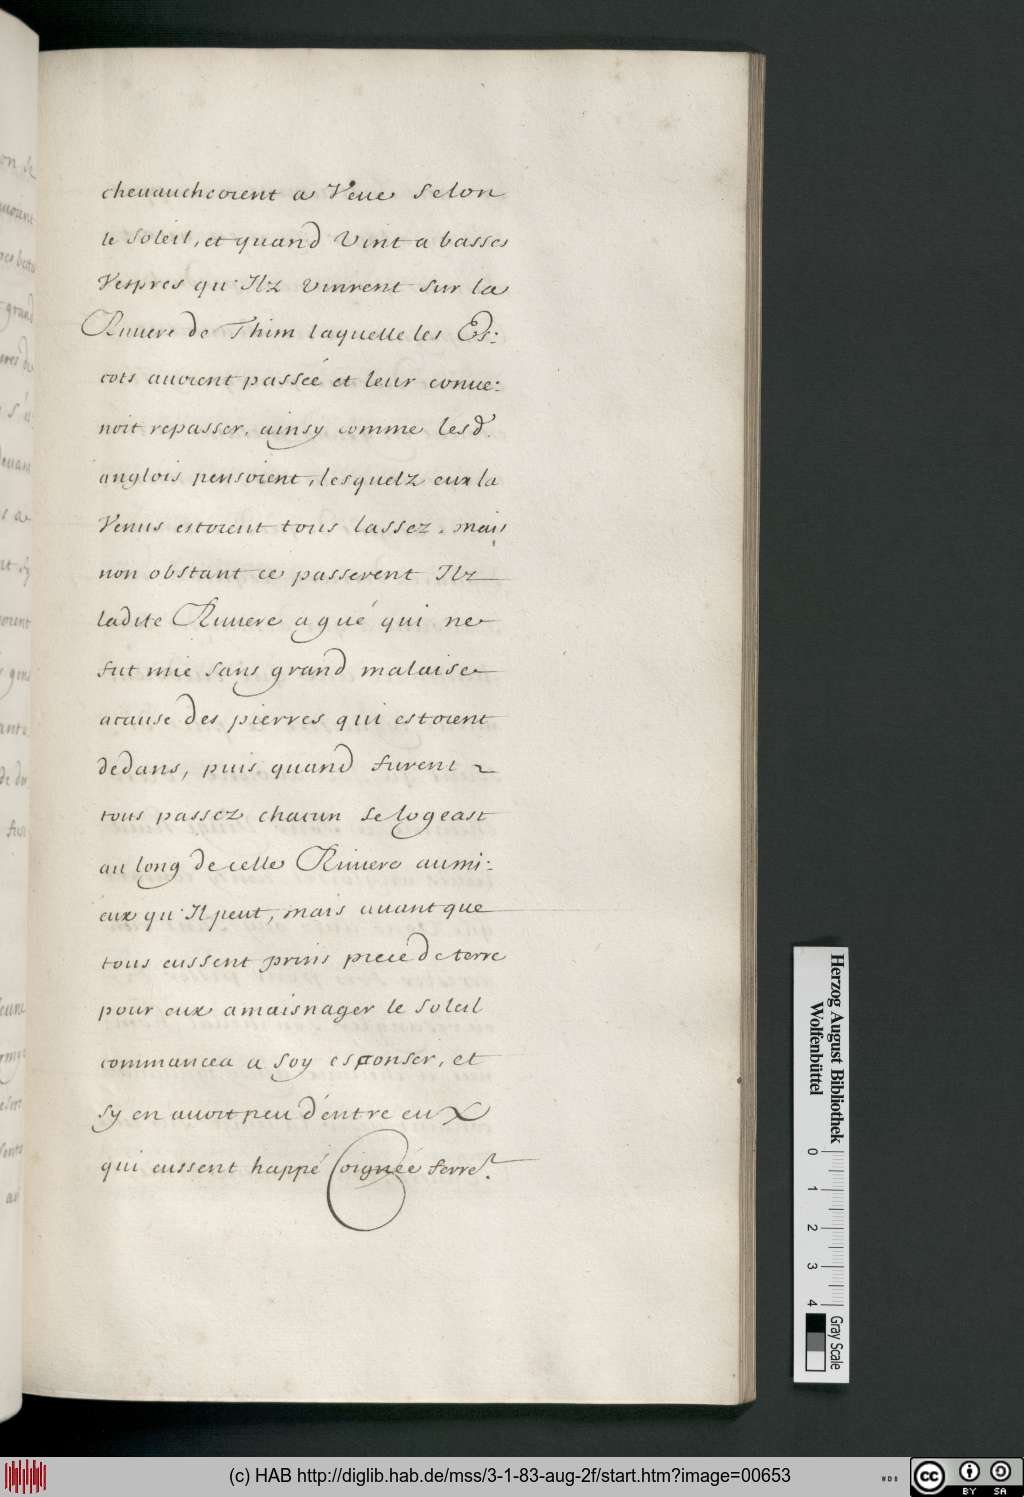 cheuaucheoient a Veue selon
le soleil, et quand vint a basses
Vespres qu'Ilz vinrent sur la
Riuiere de Thim laquelle les Es:
cots auoient passée et leur conue:
noit repasser, ainsy comme lesd.
anglois pensoient, lesquelz eux la
Venus estoient tous lassez. mais
non obstant ce passerent Ilz
ladite Riuiere a gué qui ne
fut mie sans grand malaise
acause des pierres qui estoient
dedans, puis quand furent
tous passez chacun se logeast
au long de celle Riuiere aumi:
eux qu'Il peut, mais auant que
tous eussent prins piecé de terre
pour eux amaisnager le soleil
commancea a soy esponser, et
sy en auoit peu d'entre eux
qui eussent happé Coignéé ferre.
Herzog August Bibliothek
Wolfenbüttel
0 1 2 3 4
Gray Scale
(c) HAB http://diglib.hab.de/mss/3-1-83-aug-2f/start.htm?image=00653
WDB
cc BY SA